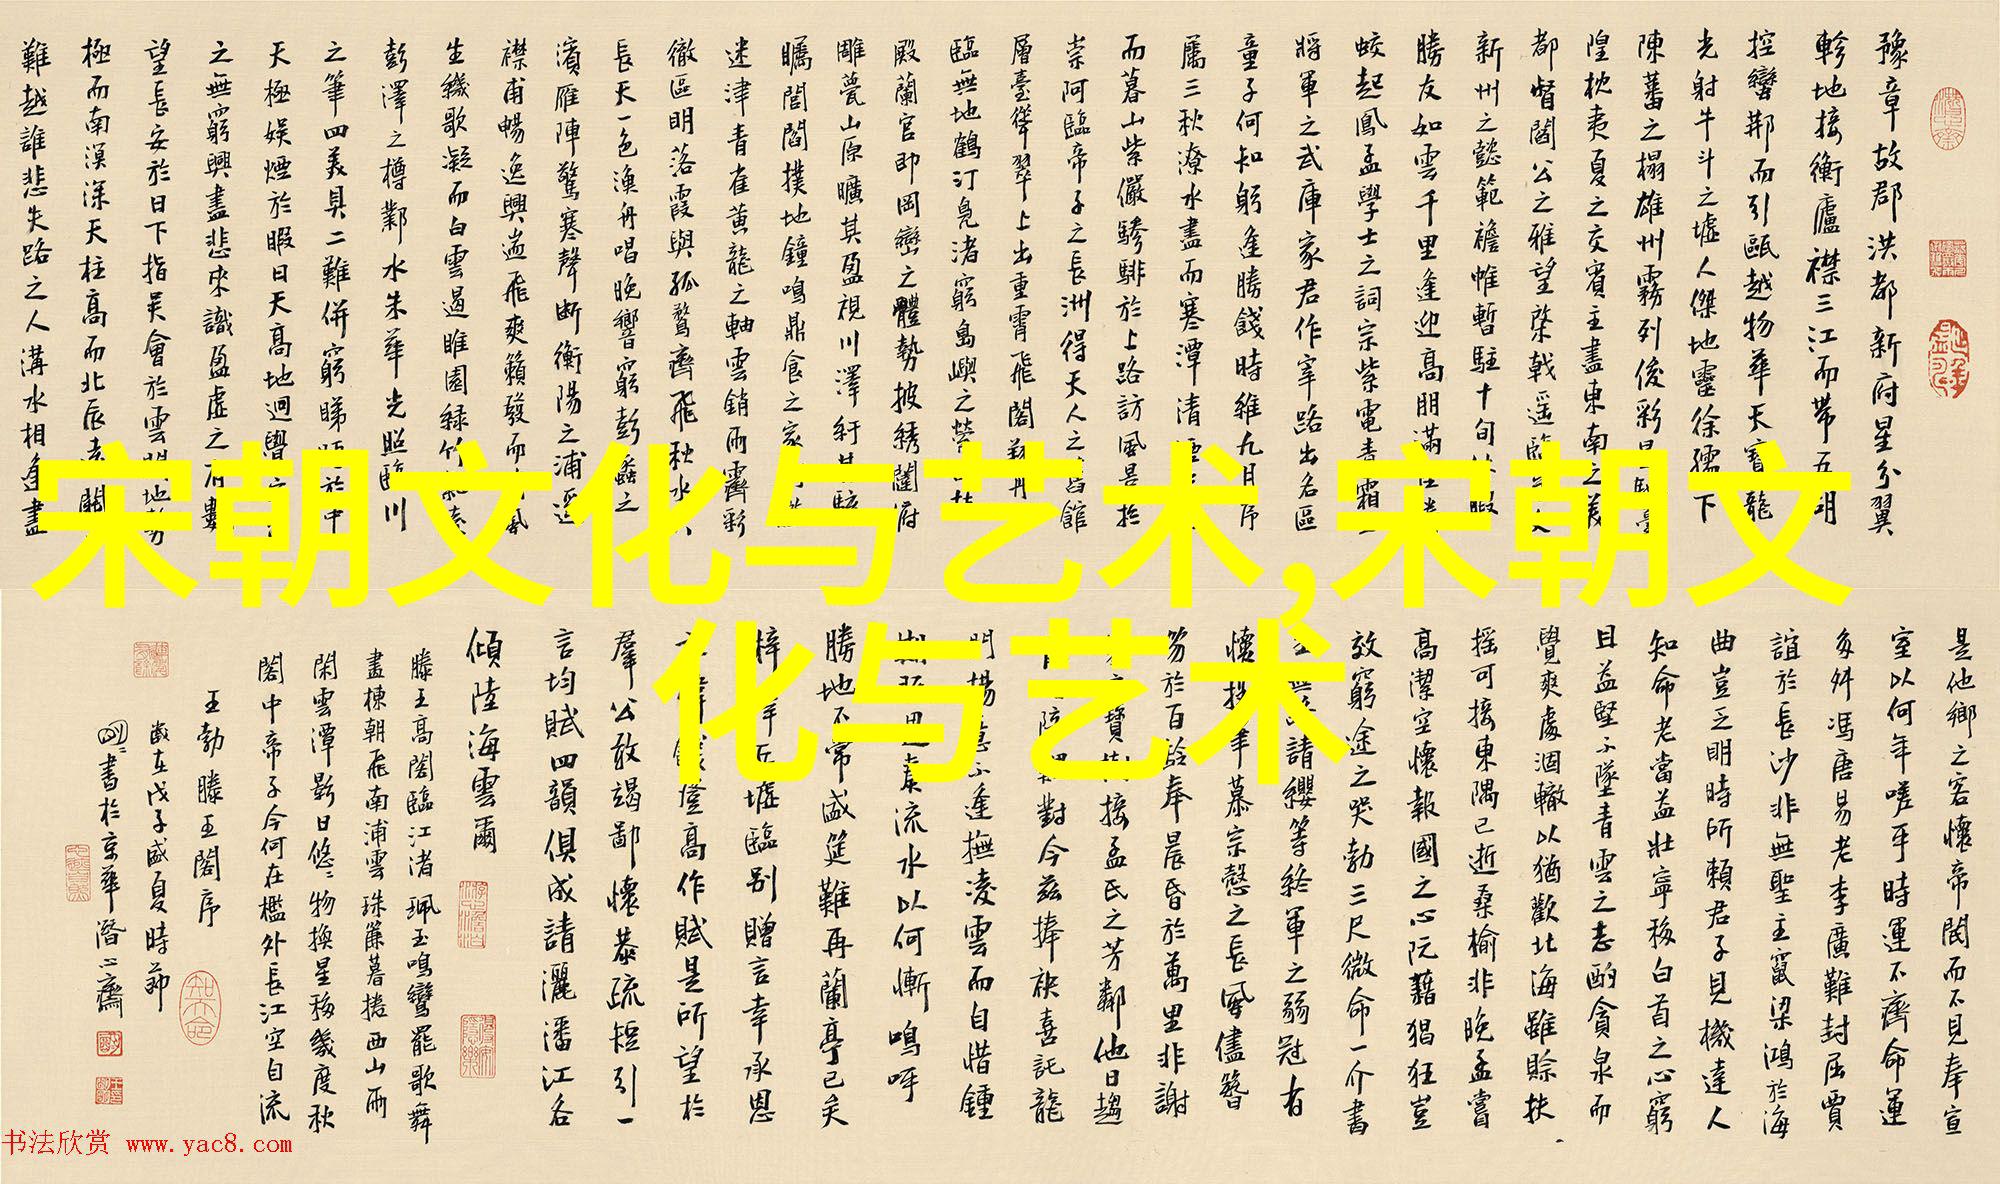 豫章故郡洪都新府星分翼
軫地接衡廬襟三江而帶五胡
控蠻荊而引甌越物華天寶龍
光射牛斗之墟人傑地靈徐孺下
陳蕃之榻雄州霧列俊彩星
隍枕夷夏之交賓主盡東南之美
都督閻公之雅望棨戟遥臨
新州之懿範襜帷暫駐十旬休暇
勝友如雲千里逢迎高朋滿
蛟起鳳孟學士之詞宗紫電青霜
將軍之武庫家君作宰路出名區
童子何知躬逢勝餞時維九月序
屬三秋潦水盡而寒潭清
而暮山紫儼驂騑於上路訪風景於
崇阿臨帝子之長洲得天人之舊館
層臺聳翠上出重霄飛閣翔丹
臨無地鶴汀鳧渚窮島嶼之縈
殿蘭宮即岡巒之體勢披綉闥俯
雕甍山原曠其盈視川澤紆其駭
矚閭閻撲地鐘鳴鼎食之家
迷津青雀黃龍之軸雲銷雨霽彩
徹區明落霞與孤鶩齊飛秋水
長天一色漁舟唱晚響窮彭蠡之
濱雁陣驚寒聲斷衡陽之浦遥
襟甫暢逸興遄飛爽籟發而風
生纖歌凝而白雲遏睢園綠竹
彭澤之樽鄴水朱華光照臨川
之筆四美具二難併窮睇於中
天極娛煙於暇日天高地迥覺
之無窮興盡悲來識盈虛之有數
望長安於日下指吳會於雲間地勢
極而南溟深天柱高而北辰遠關
難越誰悲失路之人溝水相逢盡
宋朝文化与艺术,宋朝文
化与艺术
是他鄉之客懷帝閽而不見奉宣
室以何年嗟乎時運不齊命運
多舛馮唐易老李廣難封屈賈
誼於長沙非無聖主竄梁鴻於海
曲豈乏明時所賴君子見機達人
知命老當益壯寧移白首之心窮
且益堅不墜青雲之志酌貪泉而
覺爽處涸轍以猶歡北海雖賒扶
搖可接東隅已逝桑榆非晚孟嘗
高潔空懷報國之心阮藉猖狂豈
效窮途之哭勃三尺微命一介書
請纓等終軍之弱冠有
懷投筆慕宗慤之長風儘簪
笏於百齡奉晨昏於萬里非謝
寶樹接孟氏之芳鄰他日趨
對今茲捧袂喜託龍
門楊意不逢撫凌雲而自惜鍾
奏流水以何慚嗚呼
勝地不常盛筵難再蘭亭已矣
梓丘墟臨別贈言幸承恩
登高作賦是所望於
羣公敢竭鄙懷恭疏短引一
言均賦四韻俱成請灑潘江各
傾陸海雲爾
滕王高閣臨江渚珮玉鳴鸞罷歌舞
畫棟朝飛南浦雲珠簾暮捲西山雨
閑雲潭影日悠〻物換星移幾度秋
閣中帝子今何在檻外長江空自流
王勃滕王閣序
歲在戊子盛夏時節
書於京華潛心齋
书法欣赏 www.yac8.com